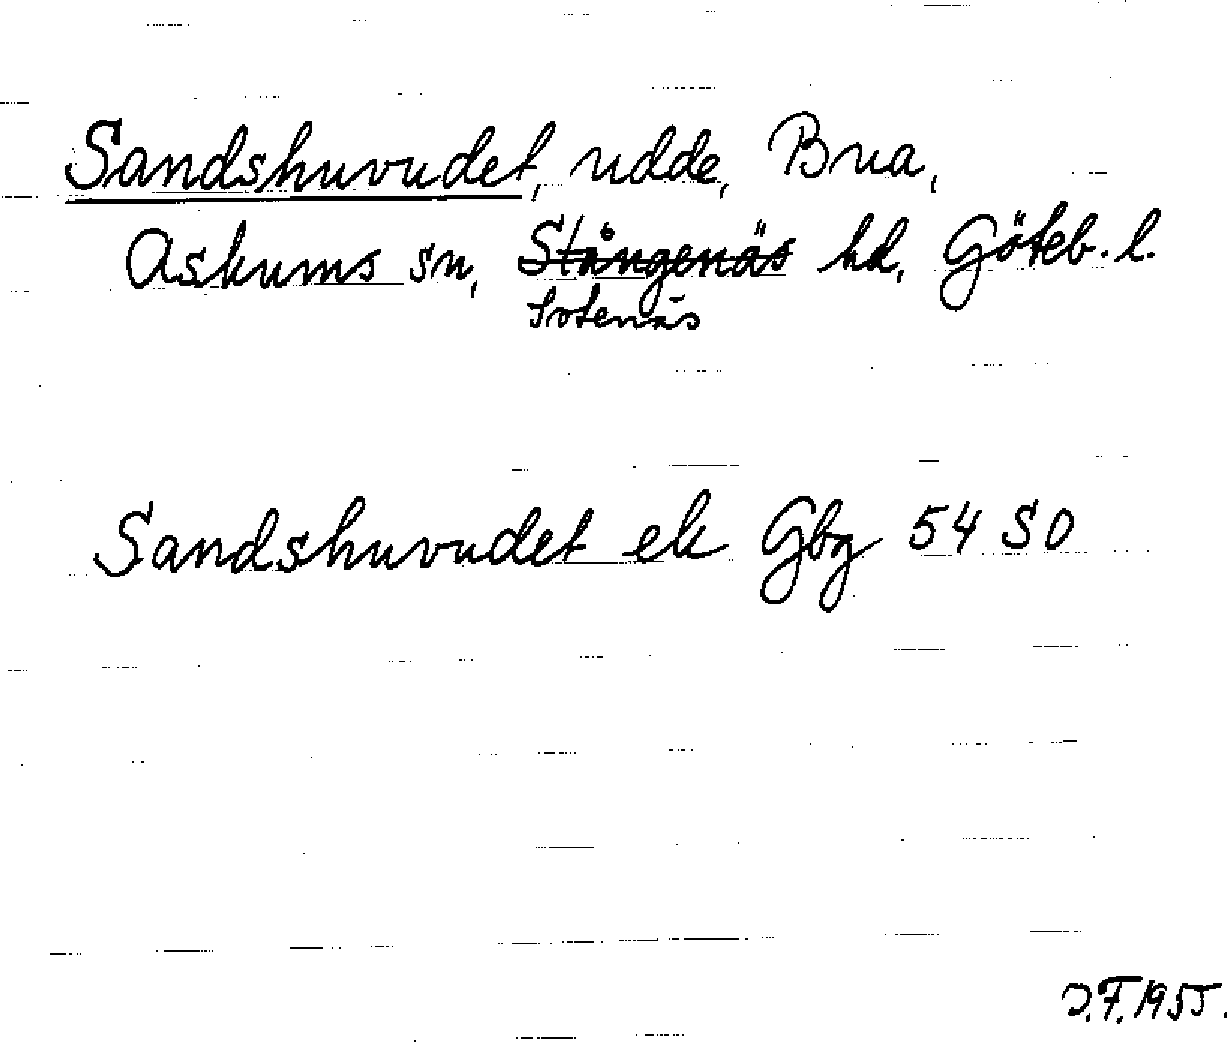 Sandshuvudet, udde, Brua,
Askums sn, Stångenäs hd, Göteb. l.
Sotenäs
Sandshuvudet ek Gbg 54 SO
J.F. 1955.